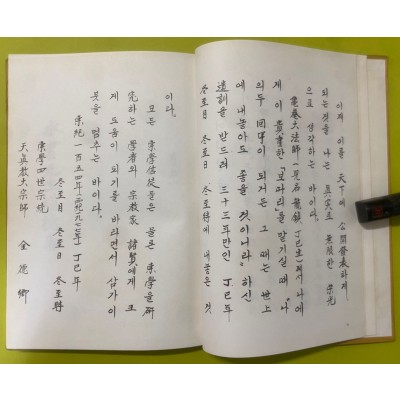 이제 이를 天下에 公開發表하게
되는 것을 나는 眞實로 無限한 榮光
으로 생각하는 바이다.
大法師(一名 龍鎭 丁巳生)께서 나에
게 이 貴重한 「보따리」를 맡기실 때 「나
의 두 回甲이 되거든 그 때는 世上
에 내놓아도 좋을 것이니라」 하신
遺訓을 받드려 三十三年만인 丁巳年
冬至月 冬至日 冬至時에 내놓은 것
이다.
모든 東學信徒들은 물론 東學을 硏
究하는 學者와 宗敎家 諸賢에게 크
게 도움이 되기를 바라면서 삼가 이
붓을 멈추는 바이다.
一百五四年 丁巳年
冬至月 冬至日 冬至時
東學四世宗統
天眞敎大宗師 金德卿